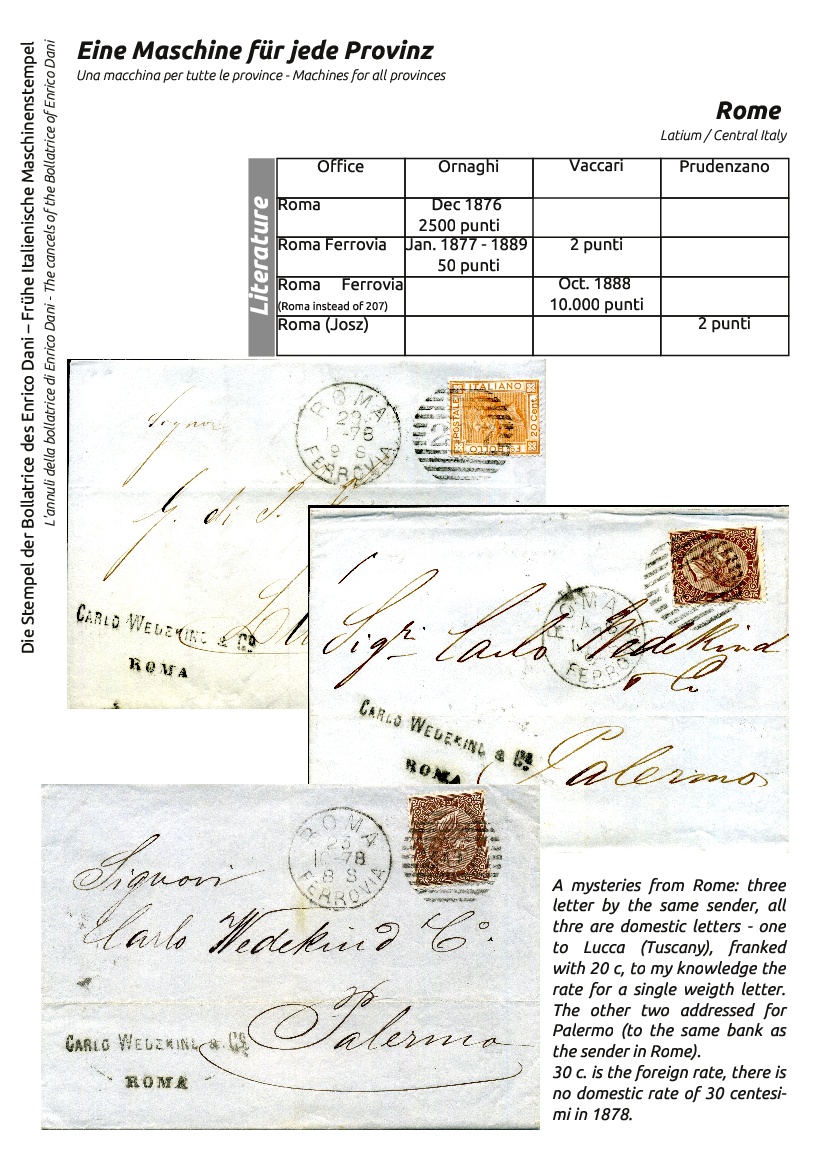 Die Stempel der Bollatrice des Enrico Dani – Frühe Italienische Maschinenstempel
L'annuli della bollatrice di Enrico Dani - The cancels of the Bollatrice of Enrico Dani
Eine Maschine für jede Provinz
Una macchina per tutte le province - Machines for all provinces
Rome
Latium / Central Italy
Literature
Office Ornaghi Vaccari Prudenzano
Roma Dec 1876
2500 punti
Roma Ferrovia Jan. 1877 - 1889 2 punti
50 punti
Roma Ferrovia Oct. 1888
(Roma instead of 207) 10.000 punti
Roma (Josz) 2 punti
ROMA
29
78
9 S
FERROVIA
POSTALE ITALIANO
20 Cent.
CARLO WEDEKIND & Co
ROMA
ROMA
FERRO
Sigri Carlo Wedekind
& C
Palermo
CARLO WEDEKIND & Co
ROMA
ROMA
23
10-78
8 S
FERROVIA
Signori
Carlo Wedekind Co.
Palermo
CARLO WEDEKIND & Co
ROMA
A mysteries from Rome: three
letter by the same sender, all
thre are domestic letters - one
to Lucca (Tuscany), franked
with 20 c, to my knowledge the
rate for a single weigth letter.
The other two addressed for
Palermo (to the same bank as
the sender in Rome).
30 c. is the foreign rate, there is
no domestic rate of 30 centesi-
mi in 1878.